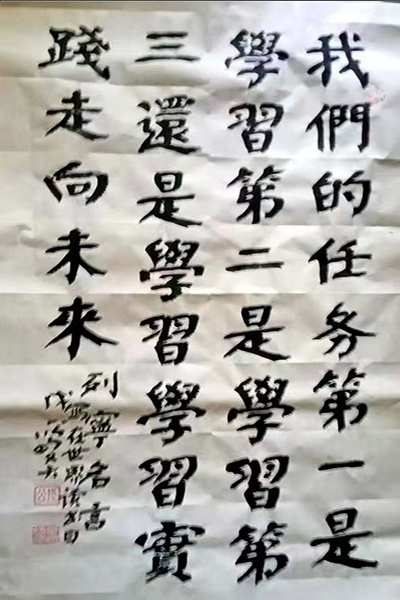 我們的任务第一是
學習第二是學習第
三還是學習學習實
踐走向未來
列寧名言
在世界读书日